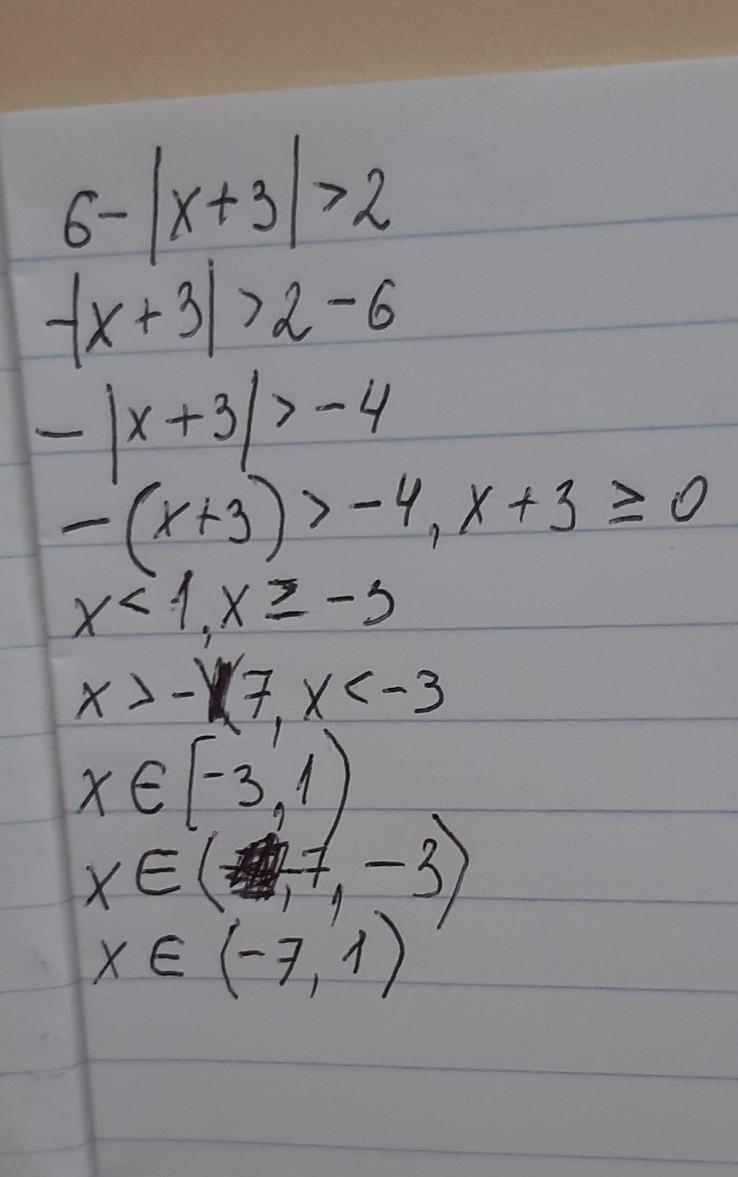 6-|x+3|>2
-|x+3|>2-6
-|x+3|>-4
-(x+3)>-4, x+3≥0
x<1, x≥-3
x>-7, x<-3
x∈[-3,1)
x∈(-7,-3)
x∈(-7,1)